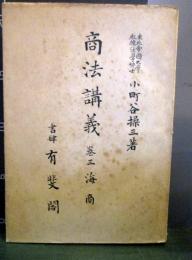 東北帝國大學
教授法學博士
小町谷操三著
商法講義
卷三 海商
書肆 有斐閣